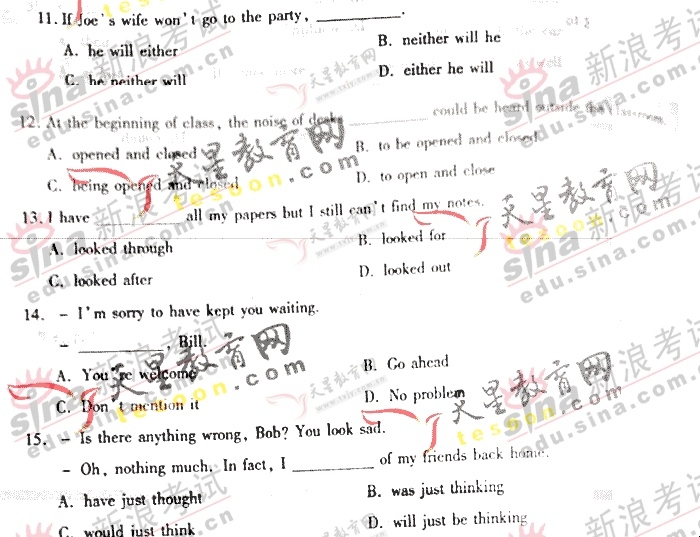 11. If Joe's wife won't go to the party, __________.
A. he will either
B. neither will he
C. he neither will
D. either he will
12. At the beginning of class, the noise of desks __________ could be heard outside the classroom.
A. opened and closed
B. to be opened and closed
C. being opened and closed
D. to open and close
13. I have __________ all my papers but I still can't find my notes.
A. looked through
B. looked for
C. looked after
D. looked out
14. – I'm sorry to have kept you waiting.
– __________, Bill.
A. You're welcome
B. Go ahead
C. Don't mention it
D. No problem
15. – Is there anything wrong, Bob? You look sad.
– Oh, nothing much. In fact, I __________ of my friends back home.
A. have just thought
B. was just thinking
C. would just think
D. will just be thinking
sina 新浪考试
edu.sina.com.cn
天星教育网
tesoon.com